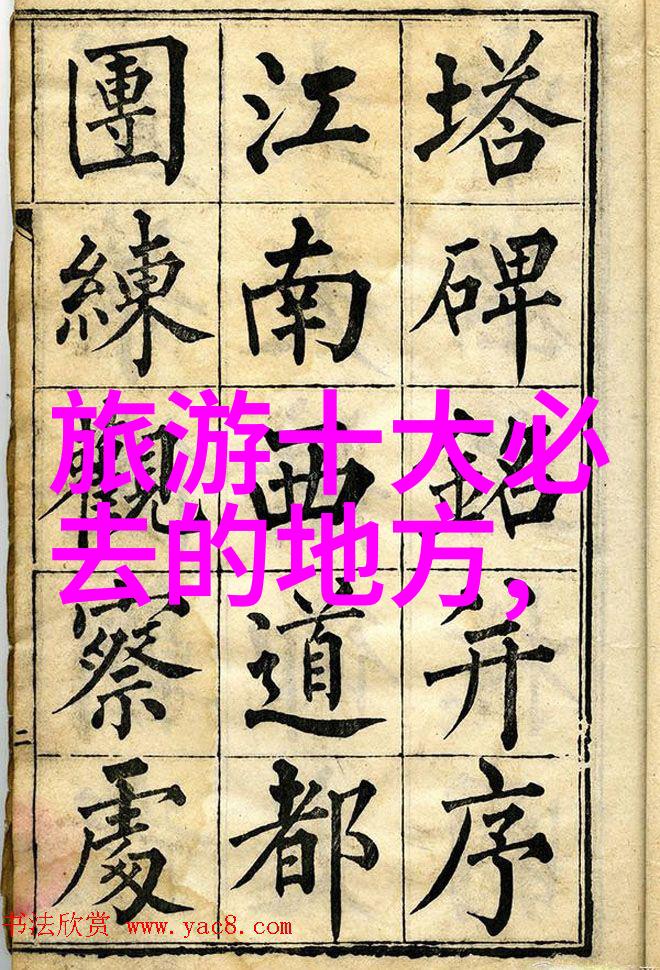 塔碑銘并序
江南西道都
團練觀察處
二
旅游十大必
去的地方,
书法欣赏 www.yac8.com